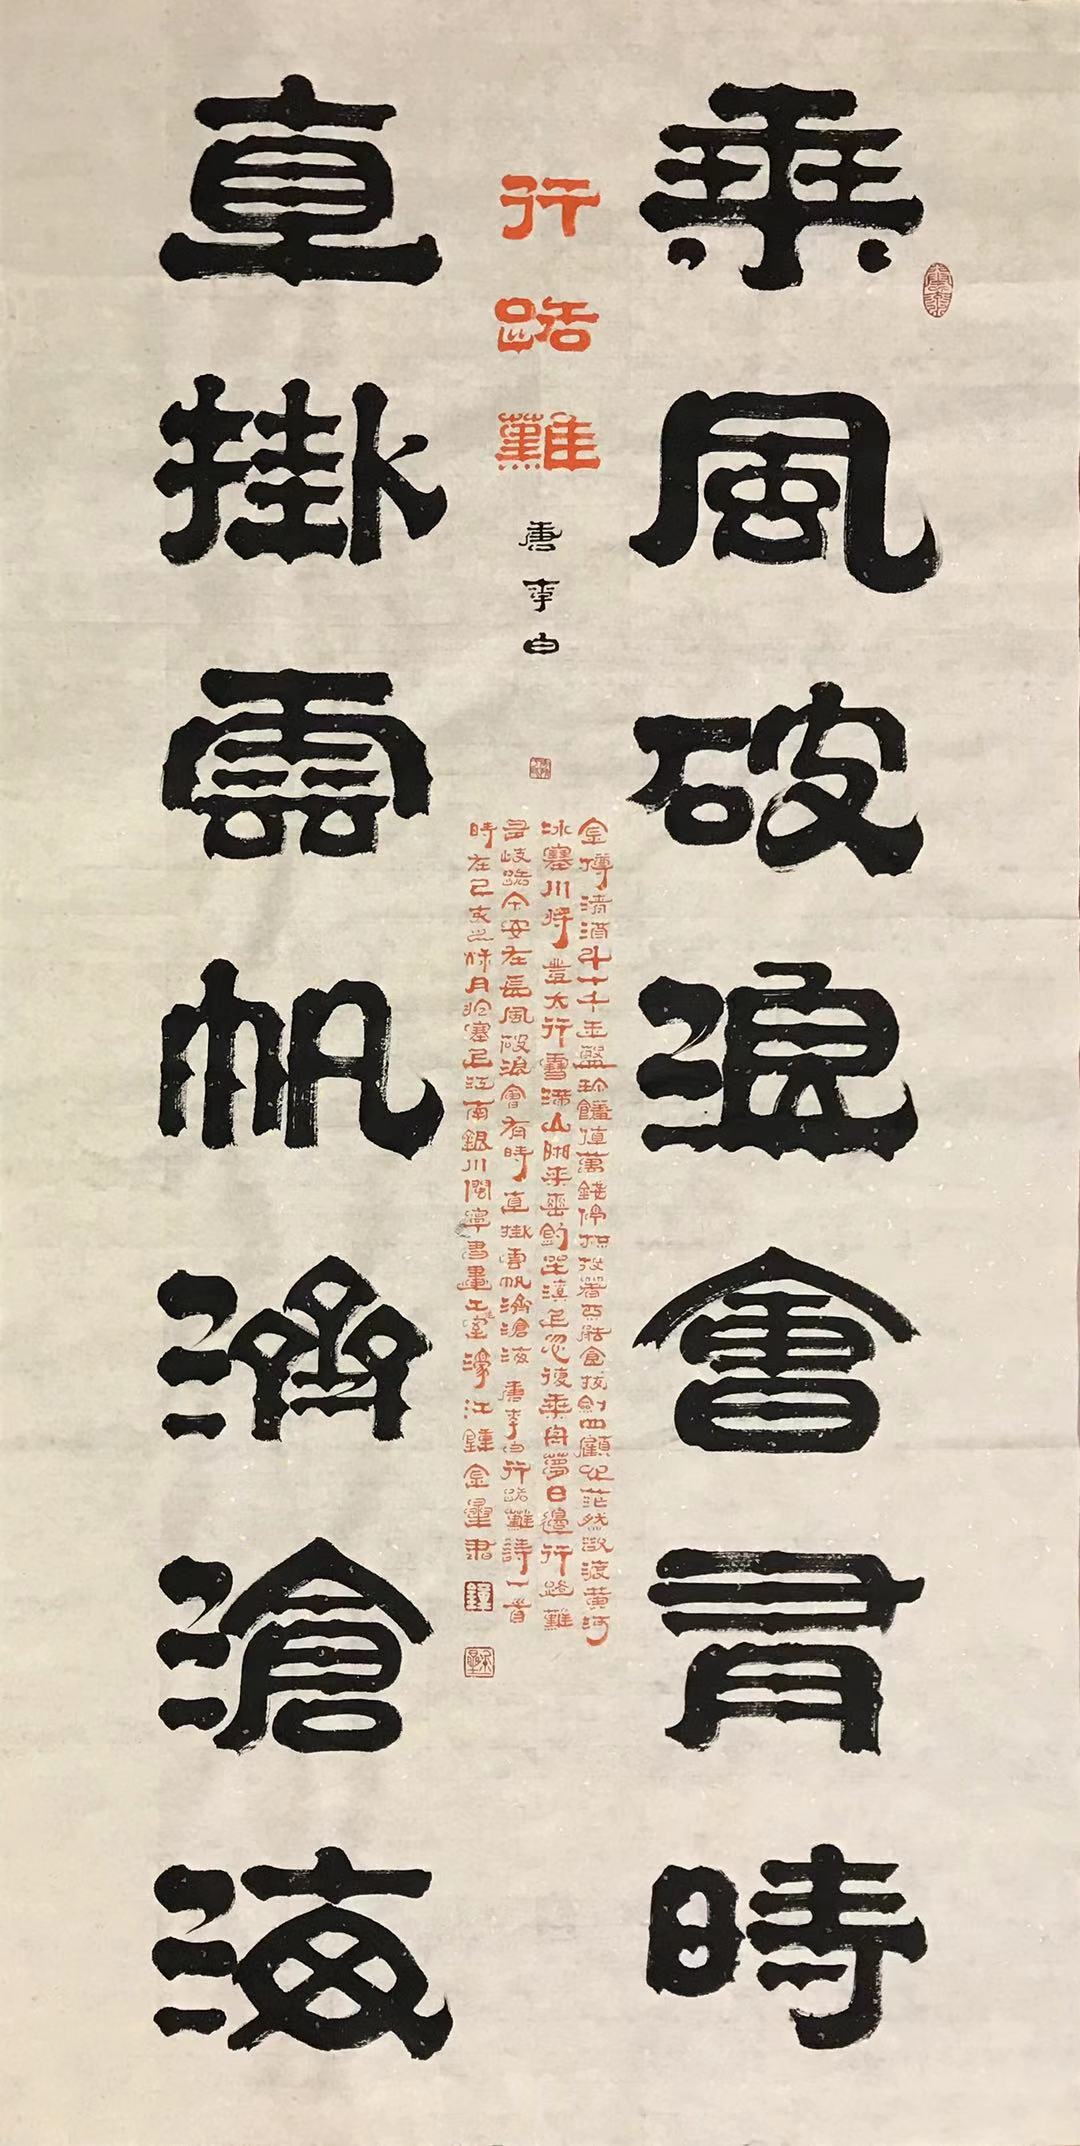 乘風破浪會有時
行路難
唐李白
金樽清酒斗十千玉盤珍饈值萬錢停杯投箸不能食拔劍四顧心茫然欲渡黃河
冰塞川將登太行雪滿山閒來垂釣坐溪上忽復乘舟夢日邊行路難
多歧路今安在長風破浪會有時直掛雲帆濟滄海唐李白行路難詩一首
時在己亥之秋月於塞上江南銀川閩寧書畫工室濠江鍾金星書
直掛雲帆濟滄海